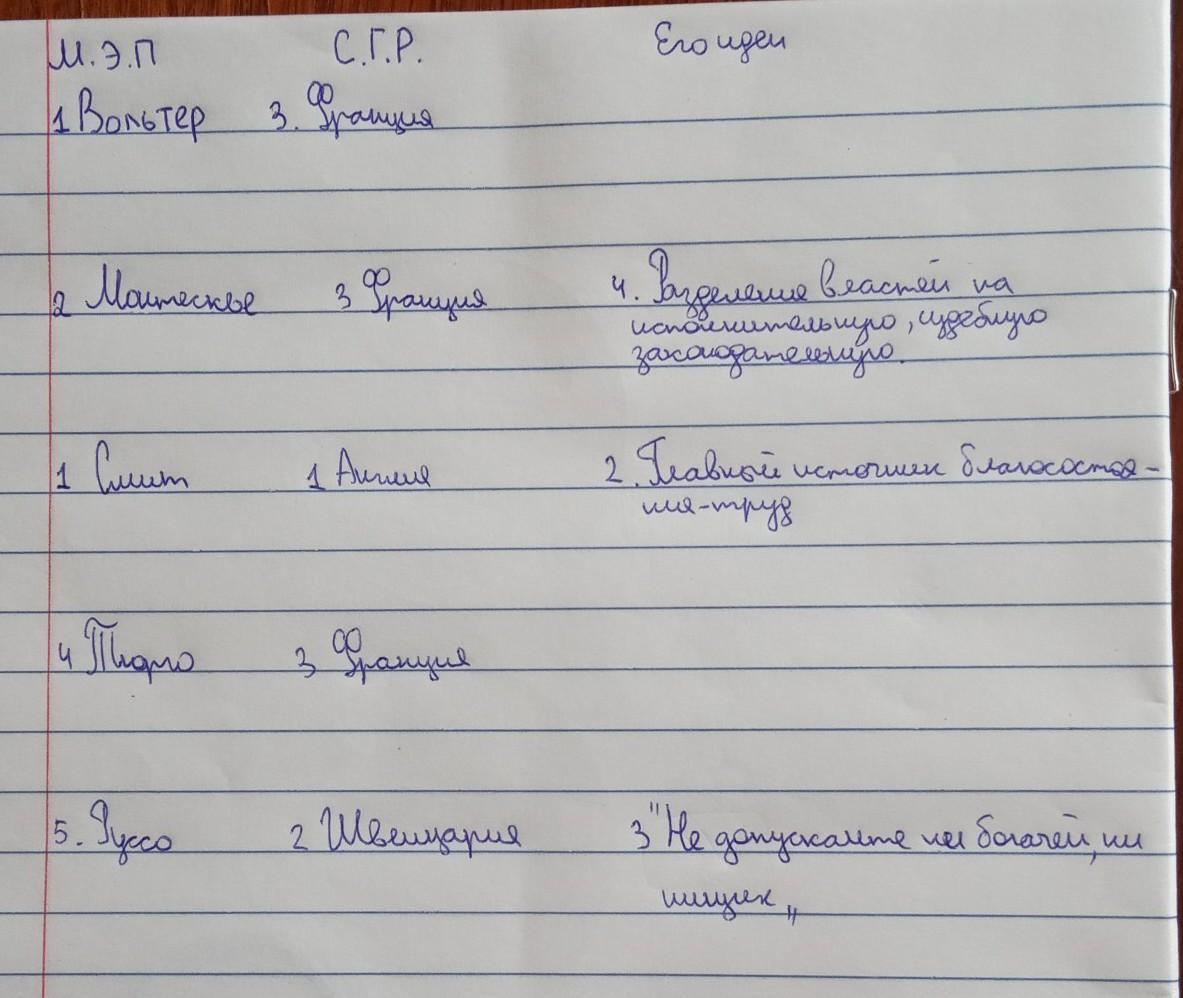 М.Э.П С.Г.Р. Его идеи
1 Вольтер 3. Франция
2 Монтескье 3 Франция 4. Разделение властей на
исполнительную, судебную
законодательную.
1 Смит 1 Англия 2. Главный источник благосостоя-
ния-труд
4 Тюрго 3 Франция
5. Руссо 2 Швейцария 3 "Не допускайте ни богачей, ни
нищих„